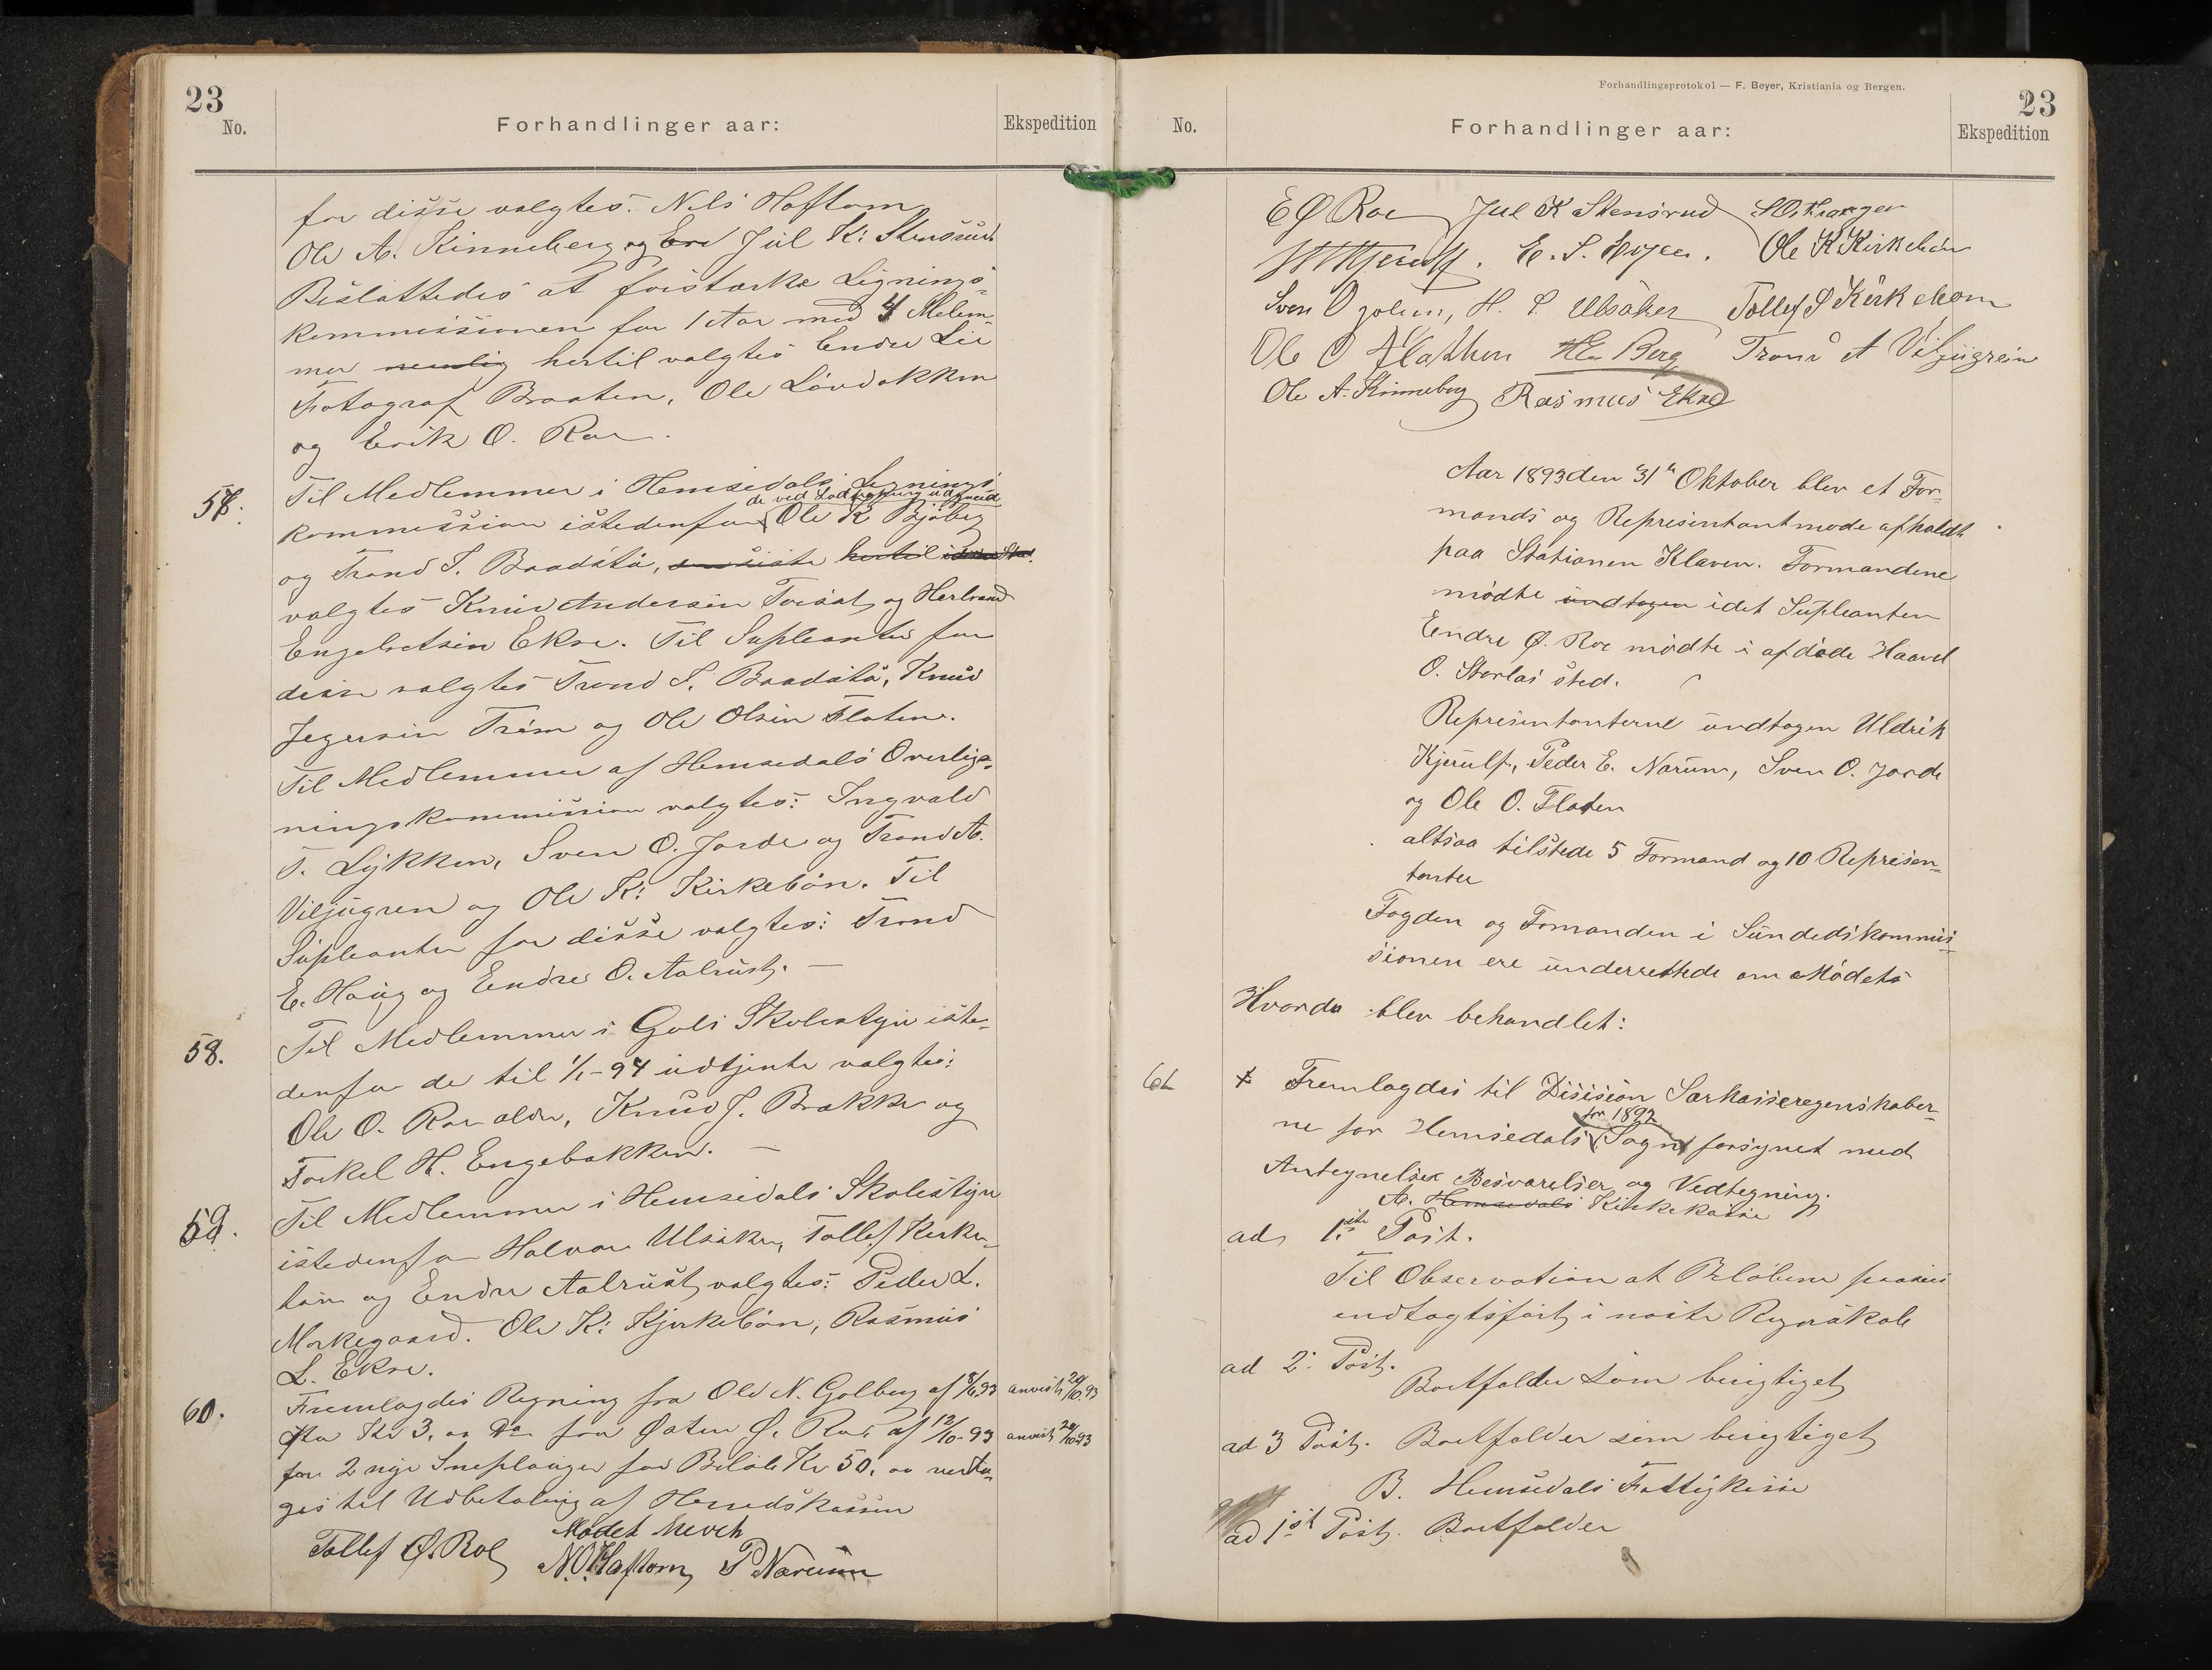 23
No.
Forhandlinger aar:
Ekspedition
for disse valgtes: Nils Haftorn
Ole A. Kinneberg og Jul K: Stensrud
Besluttedes at forstærke Lignings-
kommissionen for 1 Aar med 4 Melem-
mer nemlig hertil valgtes Endre Lie
Fotograf Braaten, Ole Løvdokken
og Erik O. Roe.
57.
Til Medlemmer i Hemsedals Lignings
de ved Lodtrækning
kommission istedenfor Ole K Bjøberg
og Trond S. Baadstå, hertil
valgtes Knud Andersen Torset og Herbrand
Engebretsen Ekre. Til Supleanter for
disse valgtes Trond S. Baadstå, Knud
Jegersen Trøim og Ole Olsen Flaten.
Til Medlemmer af Hemsedals Overlig-
ningskommission valgtes: Ingvald
T. Lykken, Sven O. Jorde og Trond A.
Viljugren og Ole K: Kirkebön. Til
Supleanter for disse valgtes: Trond
E. Haug og Endre O. Aalrust. —
58.
Til Medlemmer i Gols Skolestyre iste-
denfor de til 1/1-94 udtjente valgtes:
Ole O. Roe aldre, Knud J. Brække og
Torkel H. Engebakken. —
59.
Til Medlemmer i Hemsedals Skolestyre
istedenfor Halvor Ulsaker, Tollef Kirke-
bön og Endre Aalrust valgtes: Peder L.
Markegaard. Ole K: Kjerkebön, Rasmus
L. Ekre.
60.
Fremlagdes Regning fra Ole N. Golberg af 93 anvist
Kr 3, Do fra Østen Ø. Roe af 12/10-93 anvist
for 2 nye Sneplouger for Beløb Kr 50, vedta-
ges til Udbetaling af Herredskassen
Mødet hevet
Tollef Ø. Roe N.O. Haftorn P Narum
Forhandlingsprotokol — F. Beyer, Kristiania og Bergen.
23
No.
Forhandlinger aar:
Ekspedition
E Ø Roe Jul K Stensrud
Kjerulf. E. S. Ole K Kirkebön
Sven O H. S. Ulsaker Tollef Kirkeböen
Ole O Flathen Berg Trond A Viljugrein
Ole A. Kinneberg Rasmus Ekre
Aar 1893 den 31te Oktober blev et For-
mands og Represintantmøde afholdt
paa Stationen Klaven. Formandene
mødte undtagen idet Supleanten
Endre Ø. Roe mødte i afdøde Haavel
O. Storlas sted.
Represintanterne undtagen Uldrik
Kjerulf, Peder E. Narum, Sven O. Jorde
og Ole O. Flaten
altsaa tilstede 5 Formand og 10 Represen-
tanter
Fogden og Formanden i Sundedskommis-
sionen ere underrettede om Mødets
Hvorda blev behandlet:
61
Fremlagdes til Disision Særkasseregenskaber-
for 1892
ne for Hemsedals Sogn forsynet med
Antegnelser Besvarelser og Vedtegning.
A. Hemsedals Kirkekasse
ad 1ste Post.
Til Observation at Beløbene paasees
indtagtsført i næste Regnskab
ad 2. Post.
Bortfalder som berigtiget
ad 3 Post. Bortfalder som berigtiget
B. Hemsedals Fattigkasse
ad 1st Post. Bortfalder